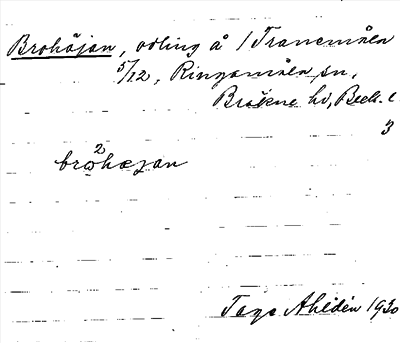 Brohöjan, odling å 1 Tranemåla
5/12, Ringamåla sn,
Bräkne hd, Blek. l
3
2
brωhæjan
Tage Ahldén 1930